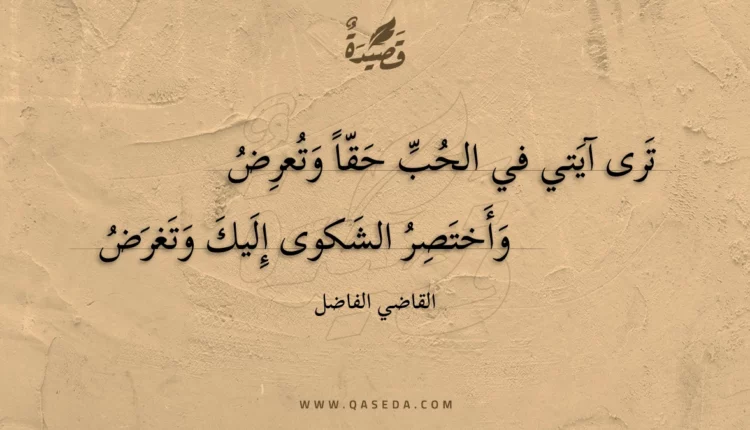 قَصِيدَةٌ
تَرى آيَتي في الحُبِّ حَقّاً وَتُعرِضُ
وَأَختَصِرُ الشَكوى إِلَيكَ وَتَغرَضُ
القاضي الفاضل
WWW.QASEDA.COM